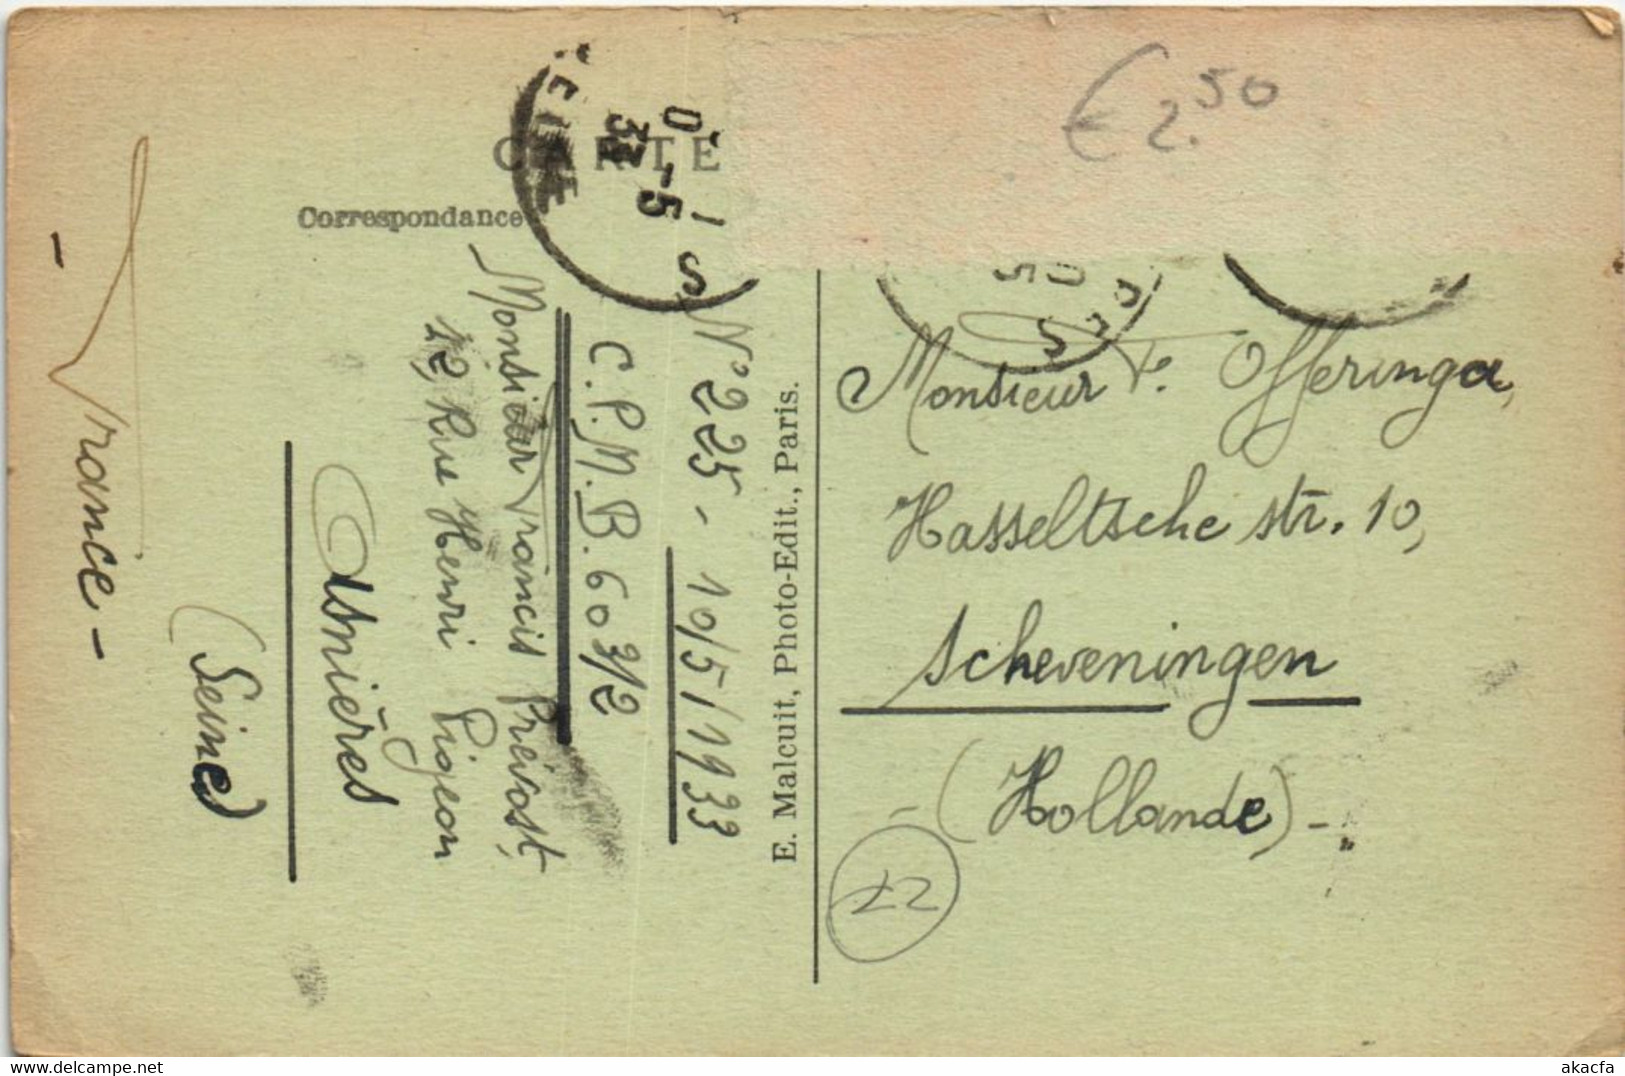 € 2.50
CARTE
Correspondance
N° 225 - 10/5/1933
C.P.M.B. 60 3/2
Monsieur Francis Prévost,
12, Rue Henri Pigeon
Asnières
(Seine)
- France -
E. Malcuit, Photo-Edit., Paris.
Monsieur F. Offeringa,
Hasseltsche str. 10,
Scheveningen
- (Hollande) -
22
akacfa